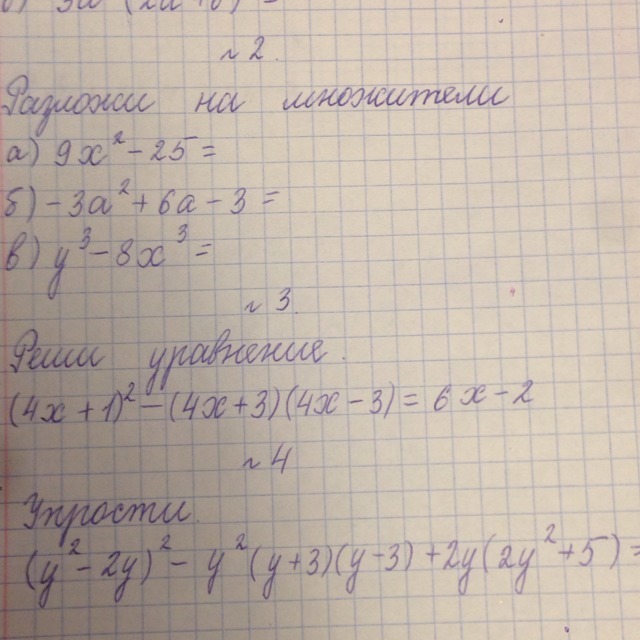 № 2.
Разложи на множители
а) 9x² - 25 =
б) - 3a² + 6a - 3 =
в) y³ - 8x³ =
№ 3.
Реши уравнение.
(4x + 1)² - (4x + 3)(4x - 3) = 6x - 2
№ 4
Упрости.
(y² - 2y)² - y²(y + 3)(y - 3) + 2y(2y² + 5) =